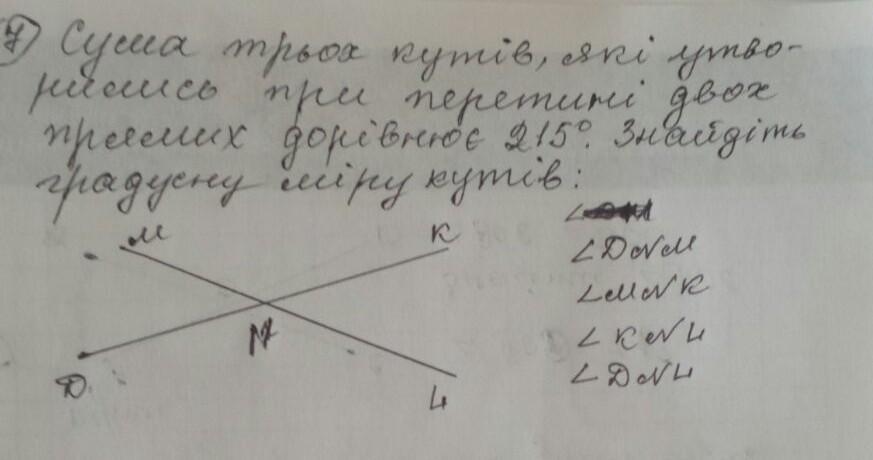 7) Сума трьох кутів, які утво-
рились при перетині двох
прямих дорівнює 215°. Знайдіть
градусну міру кутів:
∠
∠DNM
∠MNK
∠KNL
∠DNL
M
K
N
D
L